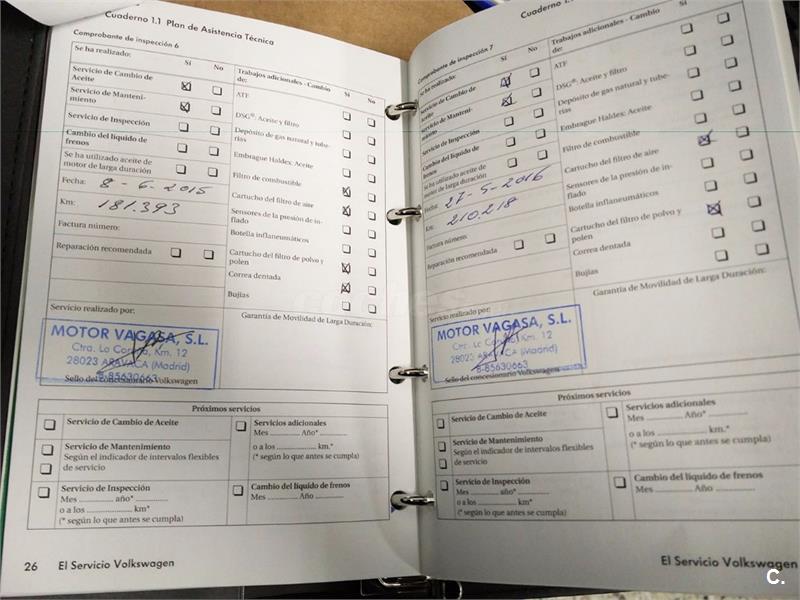 Cuaderno 1.1 Plan de Asistencia Técnica
Comprobante de inspección 6
Se ha realizado:
Sí No
Servicio de Cambio de
Aceite
Servicio de Manteni-
miento
Servicio de Inspección
Cambio del líquido de
frenos
Se ha utilizado aceite de
motor de larga duración
Fecha: 8-6-2015
Km: 181.393
Factura número:
Reparación recomendada
Trabajos adicionales - Cambio
de:
Sí No
ATF
DSG®: Aceite y filtro
Depósito de gas natural y tube-
rías
Embrague Haldex: Aceite
Filtro de combustible
Cartucho del filtro de aire
Sensores de la presión de in-
flado
Botella inflaneumáticos
Cartucho del filtro de polvo y
polen
Correa dentada
Bujías
Servicio realizado por:
Garantía de Movilidad de Larga Duración:
MOTOR VAGASA, S.L.
Ctra. La Coruña, Km. 12
28023 ARAVACA (Madrid)
B-85630663
Sello del concesionario Volkswagen
Próximos servicios
Servicio de Cambio de Aceite
Servicio de Mantenimiento
Según el indicador de intervalos flexibles
de servicio
Servicio de Inspección
Mes ............ año* ............
o a los ........................ km*
(* según lo que antes se cumpla)
Servicios adicionales
Mes .............. Año* ..............
o a los ........................ km.*
(* según lo que antes se cumpla)
Cambio del líquido de frenos
Mes .............. Año ..............
26 El Servicio Volkswagen
Cuaderno 1.
Comprobante de inspección 7
Se ha realizado:
Sí No
Servicio de Cambio de
Aceite
Servicio de Manteni-
miento
Servicio de Inspección
Cambio del líquido de
frenos
Se ha utilizado aceite de
motor de larga duración
Fecha: 27-5-2016
Km: 210.218
Factura número:
Reparación recomendada
Trabajos adicionales - Cambio
de:
Sí
ATF
DSG®: Aceite y filtro
Depósito de gas natural y tube-
rías
Embrague Haldex: Aceite
Filtro de combustible
Cartucho del filtro de aire
Sensores de la presión de in-
flado
Botella inflaneumáticos
Cartucho del filtro de polvo y
polen
Correa dentada
Bujías
Servicio realizado por:
Garantía de Movilidad de Larga Duración:
MOTOR VAGASA, S.L.
Ctra. La Coruña, Km. 12
28023 ARAVACA (Madrid)
B-85630663
Sello del concesionario Volkswagen
Próximos servicios
Servicio de Cambio de Aceite
Servicio de Mantenimiento
Según el indicador de intervalos flexibles
de servicio
Servicio de Inspección
Mes ............ año* ............
o a los ........................ km*
(* según lo que antes se cumpla)
Servicios adicionales
Mes .............. Año* ..............
o a los ........................ km.*
(* según lo que antes se cumpla)
Cambio del líquido de frenos
Mes .............. Año ..............
El Servicio Volkswagen
C.